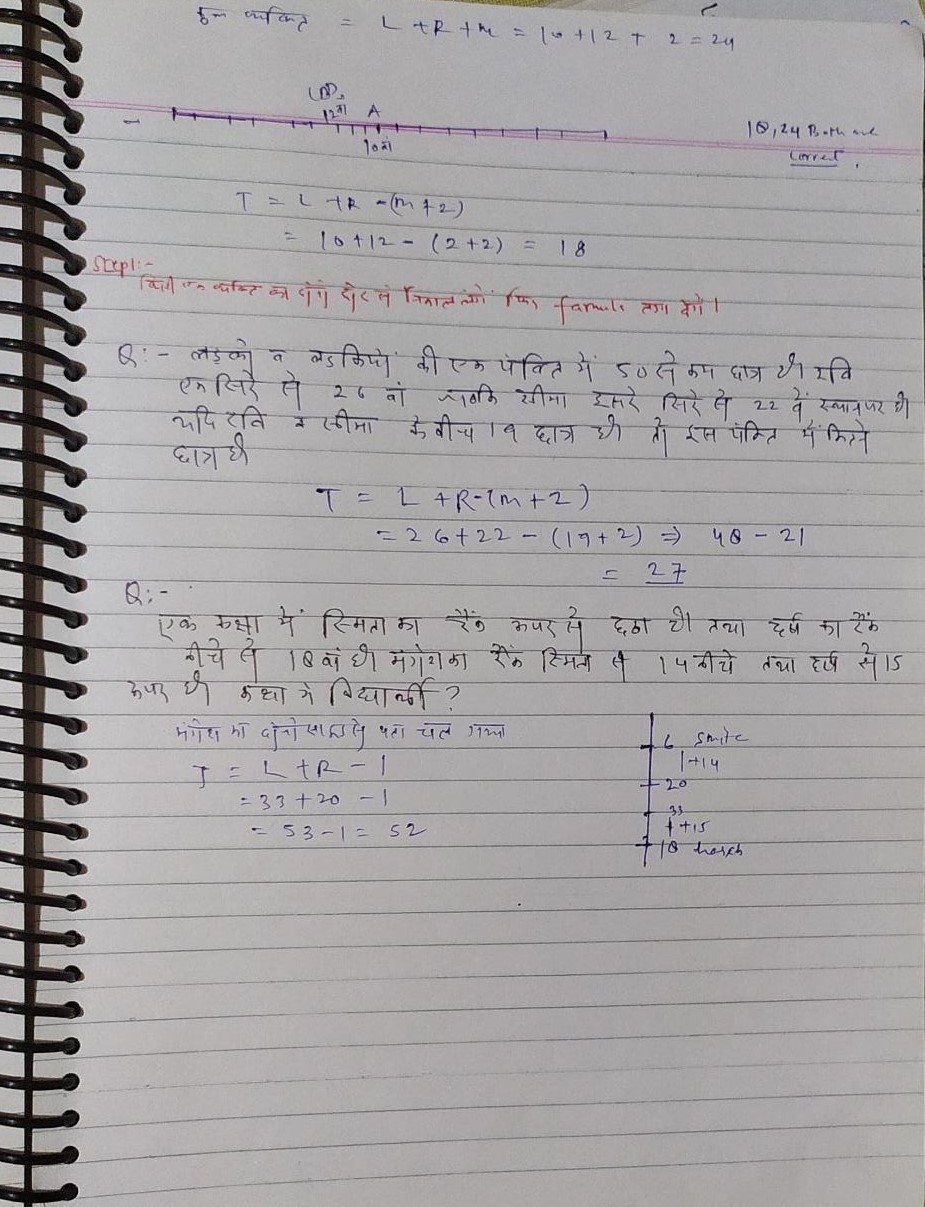 कुल व्यक्ति = L + R + m = 10 + 12 + 2 = 24
12वां A
10वां
18, 24 Both are
correct.
T = L + R - (m + 2)
= 10 + 12 - (2 + 2) = 18
Step1:-
किसी एक व्यक्ति का दोनों छोर से निकाल लेंगे फिर formula लगा देंगे।
Q:- लड़को व लडकियों की एक पंक्ति में 50 से कम छात्र है। रवि
एक सिरे से 26 वां जबकि सीमा दूसरे सिरे से 22 वें स्थान पर है।
यदि रवि व सीमा के बीच 19 छात्र है। तो इस पंक्ति में कितने
छात्र है
T = L + R - (m + 2)
= 26 + 22 - (19 + 2) ⇒ 48 - 21
= 27
Q:-
एक कक्षा में स्मिता का रैंक ऊपर से छठा है। तथा हर्ष का रैंक
नीचे से 18वां है। मंगेश का रैंक स्मिता से 14 नीचे तथा हर्ष से 15
ऊपर है। कक्षा मे विद्यार्थी ?
मंगेश का दोनो साइड से पता चल गया
T = L + R - 1
= 33 + 20 - 1
= 53 - 1 = 52
6 Smita
1+14
20
33
1+15
18 harsh